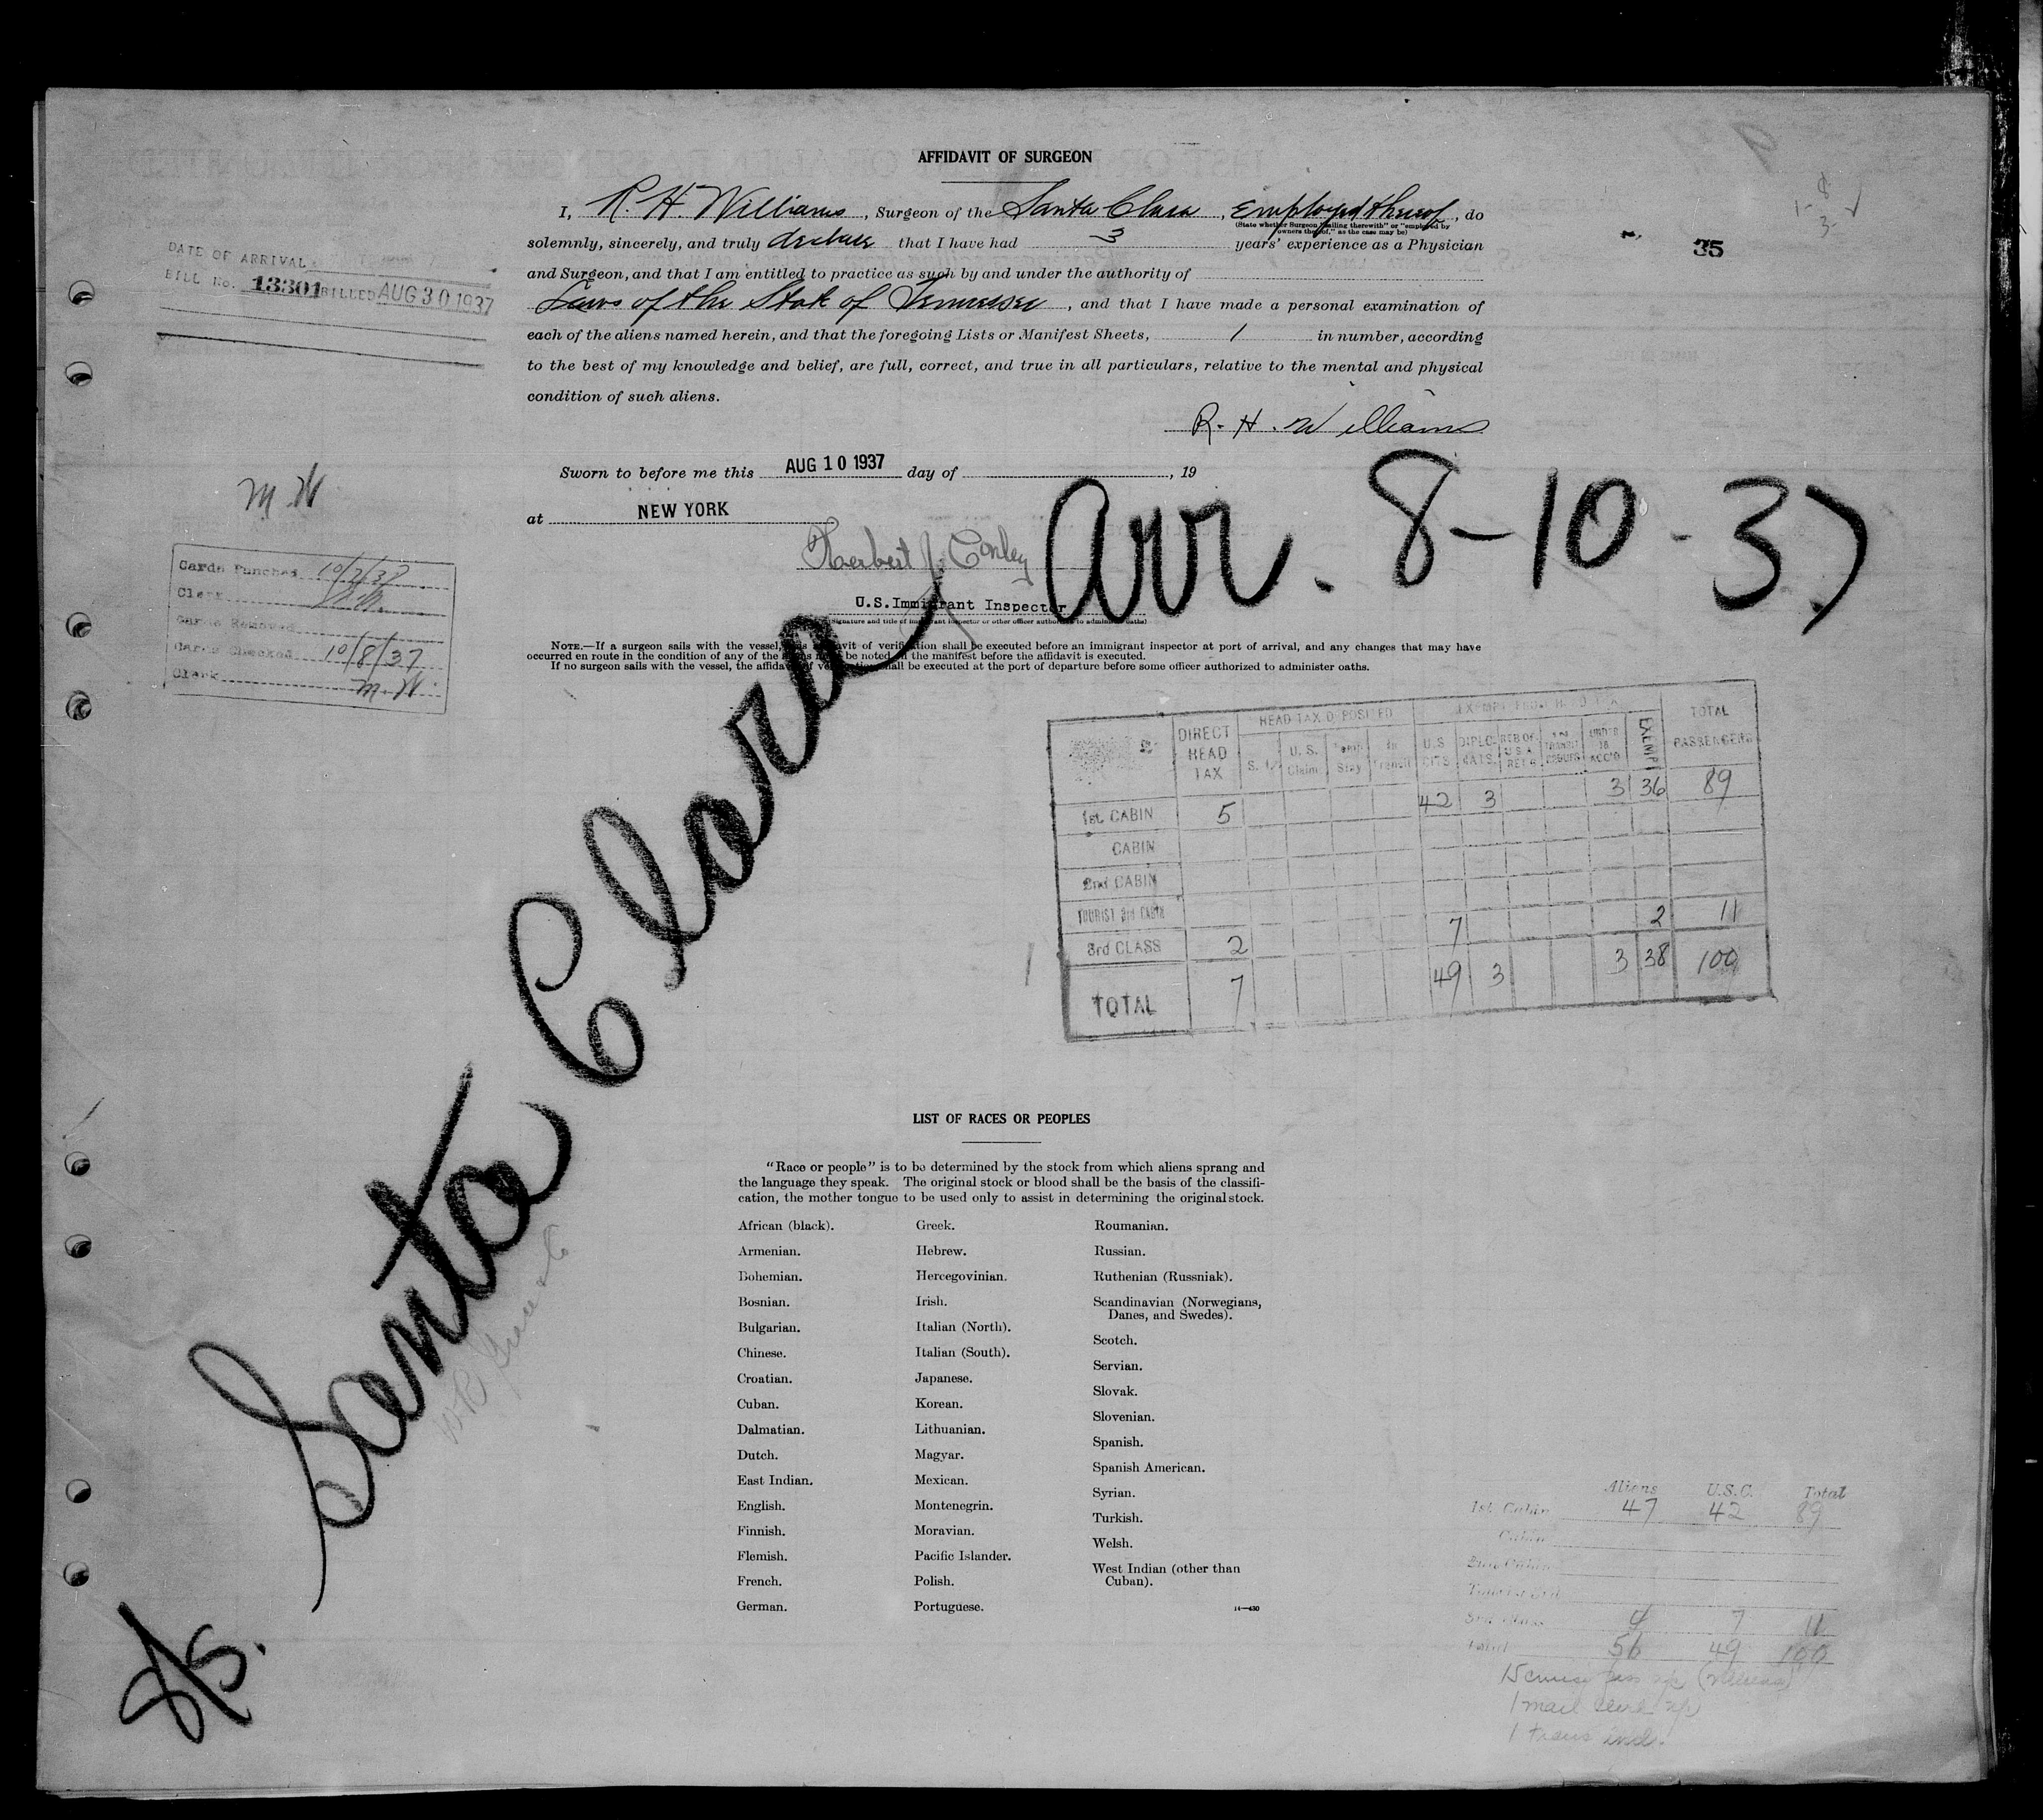 AFFIDAVIT OF SURGEON
I, R. H. Williams, Surgeon of the Santa Clara, Employed thereof, do
(State whether Surgeon "sailing therewith" or "employed by
owners thereof," as the case may be)
solemnly, sincerely, and truly declare that I have had 3 years' experience as a Physician
and Surgeon, and that I am entitled to practice as such by and under the authority of
Laws of the State of Tennessee, and that I have made a personal examination of
each of the aliens named herein, and that the foregoing Lists or Manifest Sheets, 1 in number, according
to the best of my knowledge and belief, are full, correct, and true in all particulars, relative to the mental and physical
condition of such aliens.
R. H. Williams
35
DATE OF ARRIVAL
BILL No. 13301 BILLED AUG 30 1937
Sworn to before me this AUG 10 1937 day of , 19
at NEW YORK
Herbert J. Conley
U.S. Immigrant Inspector
(Signature and title of immigrant inspector or other officer authorized to administer oaths)
Arr. 8-10-37
M.W
Cards Punched 10/7/37
Clerk
Cards Removed
Cards Checked 10/8/37
Clerk M.W.
NOTE.—If a surgeon sails with the vessel, this affidavit of verification shall be executed before an immigrant inspector at port of arrival, and any changes that may have
occurred en route in the condition of any of the aliens must be noted in the manifest before the affidavit is executed.
If no surgeon sails with the vessel, the affidavit of verification shall be executed at the port of departure before some officer authorized to administer oaths.
S/S. Santa Clara
DIRECT HEAD TAX
HEAD TAX DEPOSITED
S. I. U.S. Claim Temp Stay In Transit
EXEMPT FROM HEAD TAX
U.S. CITS. DIPLO-MATS. UNDER 16 ACC'D EXEMPT
TOTAL PASSENGERS
1st CABIN 5 42 3 3 36 89
CABIN
2nd CABIN
TOURIST 3rd CABIN
3rd CLASS 2 7 2 11
TOTAL 7 49 3 3 38 100
LIST OF RACES OR PEOPLES
"Race or people" is to be determined by the stock from which aliens sprang and
the language they speak. The original stock or blood shall be the basis of the classifi-
cation, the mother tongue to be used only to assist in determining the original stock.
African (black).
Armenian.
Bohemian.
Bosnian.
Bulgarian.
Chinese.
Croatian.
Cuban.
Dalmatian.
Dutch.
East Indian.
English.
Finnish.
Flemish.
French.
German.
Greek.
Hebrew.
Hercegovinian.
Irish.
Italian (North).
Italian (South).
Japanese.
Korean.
Lithuanian.
Magyar.
Mexican.
Montenegrin.
Moravian.
Pacific Islander.
Polish.
Portuguese.
Roumanian.
Russian.
Ruthenian (Russniak).
Scandinavian (Norwegians,
Danes, and Swedes).
Scotch.
Servian.
Slovak.
Slovenian.
Spanish.
Spanish American.
Syrian.
Turkish.
Welsh.
West Indian (other than
Cuban).
14—430
Aliens U.S.C. Total
1st Cabin 47 42 89
Cabin
2nd Cabin
3rd Class 4 7 11
Total 49 100
1 mail
1 trans